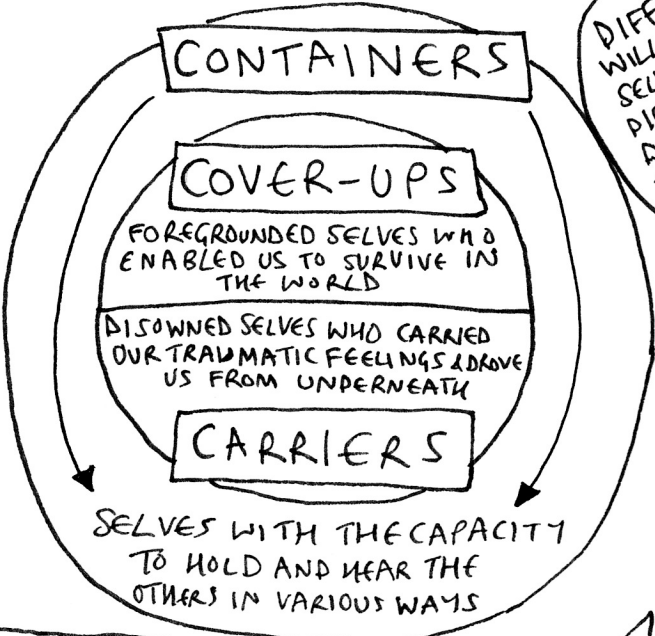 CONTAINERS
DIFF
WILL
SEL
COVER-UPS
FOREGROUNDED SELVES WHO
ENABLED US TO SURVIVE IN
THE WORLD
DISOWNED SELVES WHO CARRIED
OUR TRAUMATIC FEELINGS & DROVE
US FROM UNDERNEATH
CARRIERS
SELVES WITH THE CAPACITY
TO HOLD AND HEAR THE
OTHERS IN VARIOUS WAYS